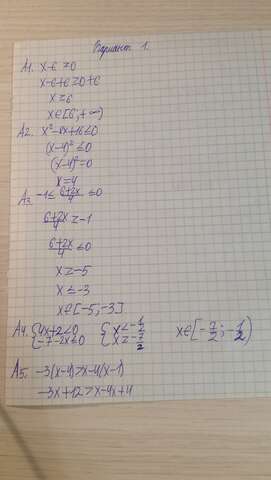 Вариант 1.
А1. x-6≥0
x-6+6≥0+6
x≥6
x∈[6;+∞)
А2. x²-8x+16≤0
(x-4)²≤0
(x-4)²=0
x=4
А3. -1≤(6+2x)/4≤0
(6+2x)/4≥-1
(6+2x)/4≤0
x≥-5
x≤-3
x∈[-5;-3]
А4. {4x+2<0 {x<-1/2 x∈[-7/2;-1/2)
{-7-2x≤0 {x≥-7/2
А5. -3(x-4)>x-4(x-1)
-3x+12>x-4x+4